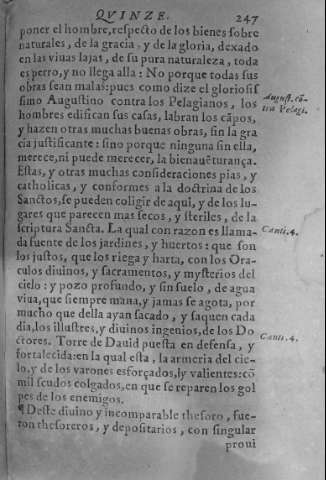 QVINZE. 247
poner el hombre, respecto de los bienes sobre
naturales, de la gracia, y de la gloria, dexado
en las viuas lajas, de su pura naturaleza, toda
es perro, y no llega alla: No porque todas sus
obras sean malas: pues como dize el gloriosis
simo Augustino contra los Pelagianos, los
hombres edifican sus casas, labran los cãpos,
y hazen otras muchas buenas obras, sin la gra
cia justificante: sino porque ninguna sin ella,
merece, ni puede merecer, la bienauẽturança.
Estas, y otras muchas consideraciones pias, y
catholicas, y conformes a la doctrina de los
Sanctos, se pueden coligir de aqui, y de los lu-
gares que parecen mas secos, y steriles, de la
scriptura Sancta. La qual con razon es llama-
da fuente de los jardines, y huertos: que son
los justos, que los riega y harta, con los Ora-
culos diuinos, y sacramentos, y mysterios del
cielo: y pozo profundo, y sin suelo, de agua
viua, que siempre mana, y jamas se agota, por
mucho que della ayan sacado, y saquen cada
dia, los illustres, y diuinos ingenios, de los Do
ctores. Torre de Dauid puesta en defensa, y
fortalecida: en la qual esta, la armeria del cie-
lo, y de los varones esforçados, y valientes: cõ
mil scudos colgados, en que se reparen los gol
pes de los enemigos.
¶ Deste diuino y incomparable thesoro, fue-
ron thesoreros, y depositarios, con singular
proui
August. cõ-
tra Pelagi.
Canti. 4.
Canti. 4.